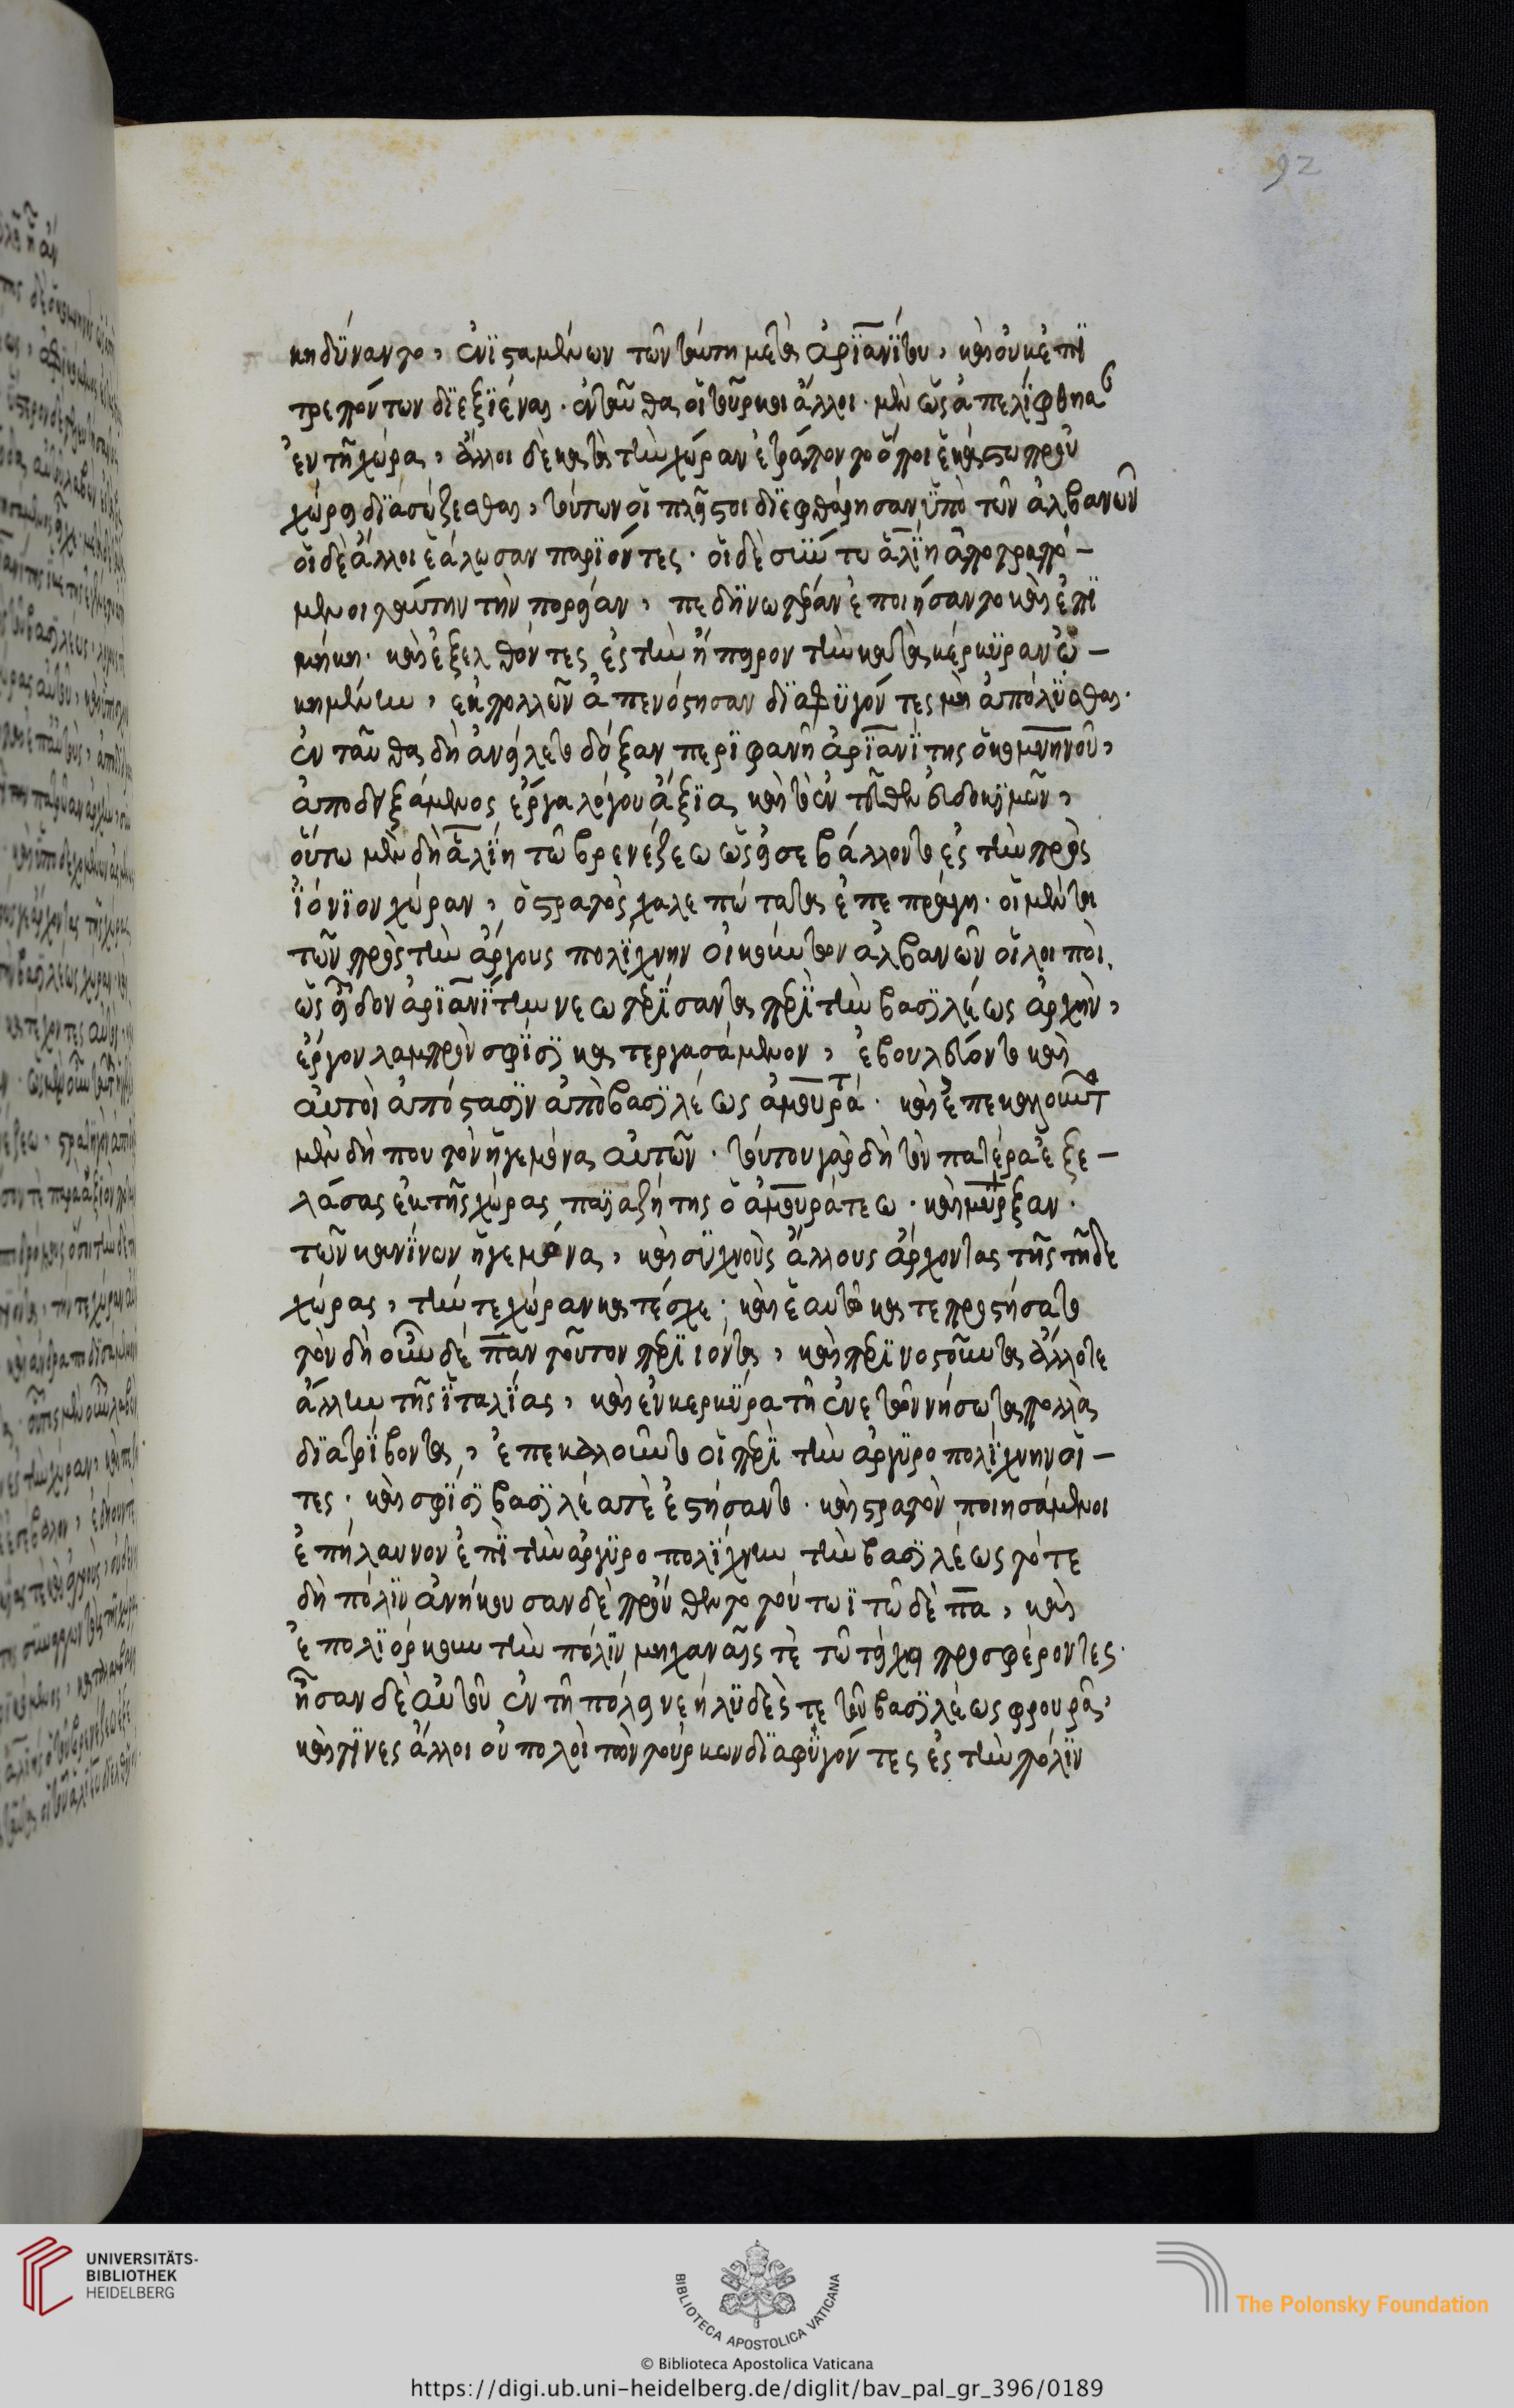 92
κηδύναντο, ἐνϊσταμένων τῶν ταύτη μετὰ ἀρϊανίτου, καὶ οὐκ ἐπϊ
τρεπόντων δϊεξϊέναι. ἐνταῦθα οἱ τοῦρκοι ἄλλοι μὲν ὡς ἀπελίφθησ
ἐν τῆ χώρα, ἄλλοι δὲ κατὰ τὴν χώραν ἐτράποντο ὅποι ἑκάστω προὐ
χώρει δϊασώζεσθαι, τούτων οἱ πλεῖστοι δϊεφθάρησαν ὑπὸ τῶν ἀλβανῶν
οἱ δὲ ἄλλοι ἑάλωσαν παρϊόντες. οἱ δὲ σὺν τῶ ἀλίη ἀποτραπό-
μενοι ταύτην τὴν πορείαν, πεδϊνωτέραν ἐποιήσαντο καὶ ἐπϊ
μήκη. καὶ ἐξελθόντες ἐς τὴν ἤπειρον τὴν κατὰ κέρκϋραν ὠ-
κημένην, ἐκ πολλῶν ἀπενόστησαν δϊαφϋγόντες μὴ ἀπολϋσθαι.
ἐνταῦθα δὴ ἀνείλετο δόξαν περϊφανῆ ἀρϊανίτης ὁ κομνηνοῦ,
ἀποδειξάμενος ἔργα λόγου ἄξϊα καὶ τὸ ἐν τῶδε εὐδοκϊμῶν,
οὕτω μὲν δὴ ἀλίη τῶ βρενέζεω ὡς εἰσεβάλλοντο ἐς τὴν πρὸς
ἰόνϊον χώραν, ὁ στρατὸς χαλεπώτατα ἐπεπράγη. οἱ μέντοι
τῶν πρὸς τὴν ἄργους πολίχνην οἰκούντων ἀλβανῶν οἱ λοιποὶ,
ὡς εἶδον ἀρϊανίτην νεωτερϊσαντα περϊ τὴν βασιλέως ἀρχὴν,
ἔργον λαμπρὸν σφίσϊ κατεργασάμενον, ἐβουλεύοντο καὶ
αὐτοὶ ἀπόστασϊν ἀπὸ βασιλέως ἀμουράτ. καὶ ἐπεκαλοῦντο
μὲν δή που τὸν ἡγεμόνα αὐτῶν. τούτου γὰρ δὴ τὸν πατέρα ἐξε-
λάσας ἐκ τῆς χώρας παϊαζήτης ὁ ἀμουράτεω. καὶ μύρξαν
τῶν κανίνων ἡγεμόνα, καὶ συχνοὺς ἄλλους ἄρχοντας τῆς τῆδε
χώρας, τήν τε χώραν κατέσχε. καὶ ἑαυτῶ κατεπρστήσατο
τὸν δὴ οὖν δέπαν τοῦτον περϊϊόντα, καὶ περϊνοστοῦντα ἄλλοτε
ἄλλην τῆς ἰταλίας, καὶ ἐν κερκύρα τῆ ἐνετῶν νήσω τὰ πολλὰ
δϊατρίβοντα, ἐπεκαλοῦντο οἱ περϊ τὴν ἀργϋροπολίχνην οἱ-
τες. καὶ σφίσϊ βασιλέα τὲ ἐστήσαντο. καὶ στρατὸν ποιησάμενοι
ἐπήλαυνον ἐπϊ τὴν ἀργϋροπολίχνην τὴν βασιλέως τότε
δὴ πόλϊν ἀνήκουσαν δὲ πρού θεντο τούτωϊ τῶ δέπα, καὶ
ἐπολϊόρκουν τὴν πόλϊν μηχαναῖς τὲ τῶ τείχει προσφέροντες.
ἦσαν δὲ αὐτοῦ ἐν τῆ πόλει νεήλϋδές τε τοῦ βασιλέως φρουρᾶς,
καὶ τϊνες ἄλλοι οὐ πολοὶ τῶν τούρκων δϊαφϋγόντες ἐς τὴν πόλϊν
UNIVERSITÄTS-
BIBLIOTHEK
HEIDELBERG
BIBLIOTECA APOSTOLICA VATICANA
The Polonsky Foundation
© Biblioteca Apostolica Vaticana
https://digi.ub.uni-heidelberg.de/diglit/bav_pal_gr_396/0189